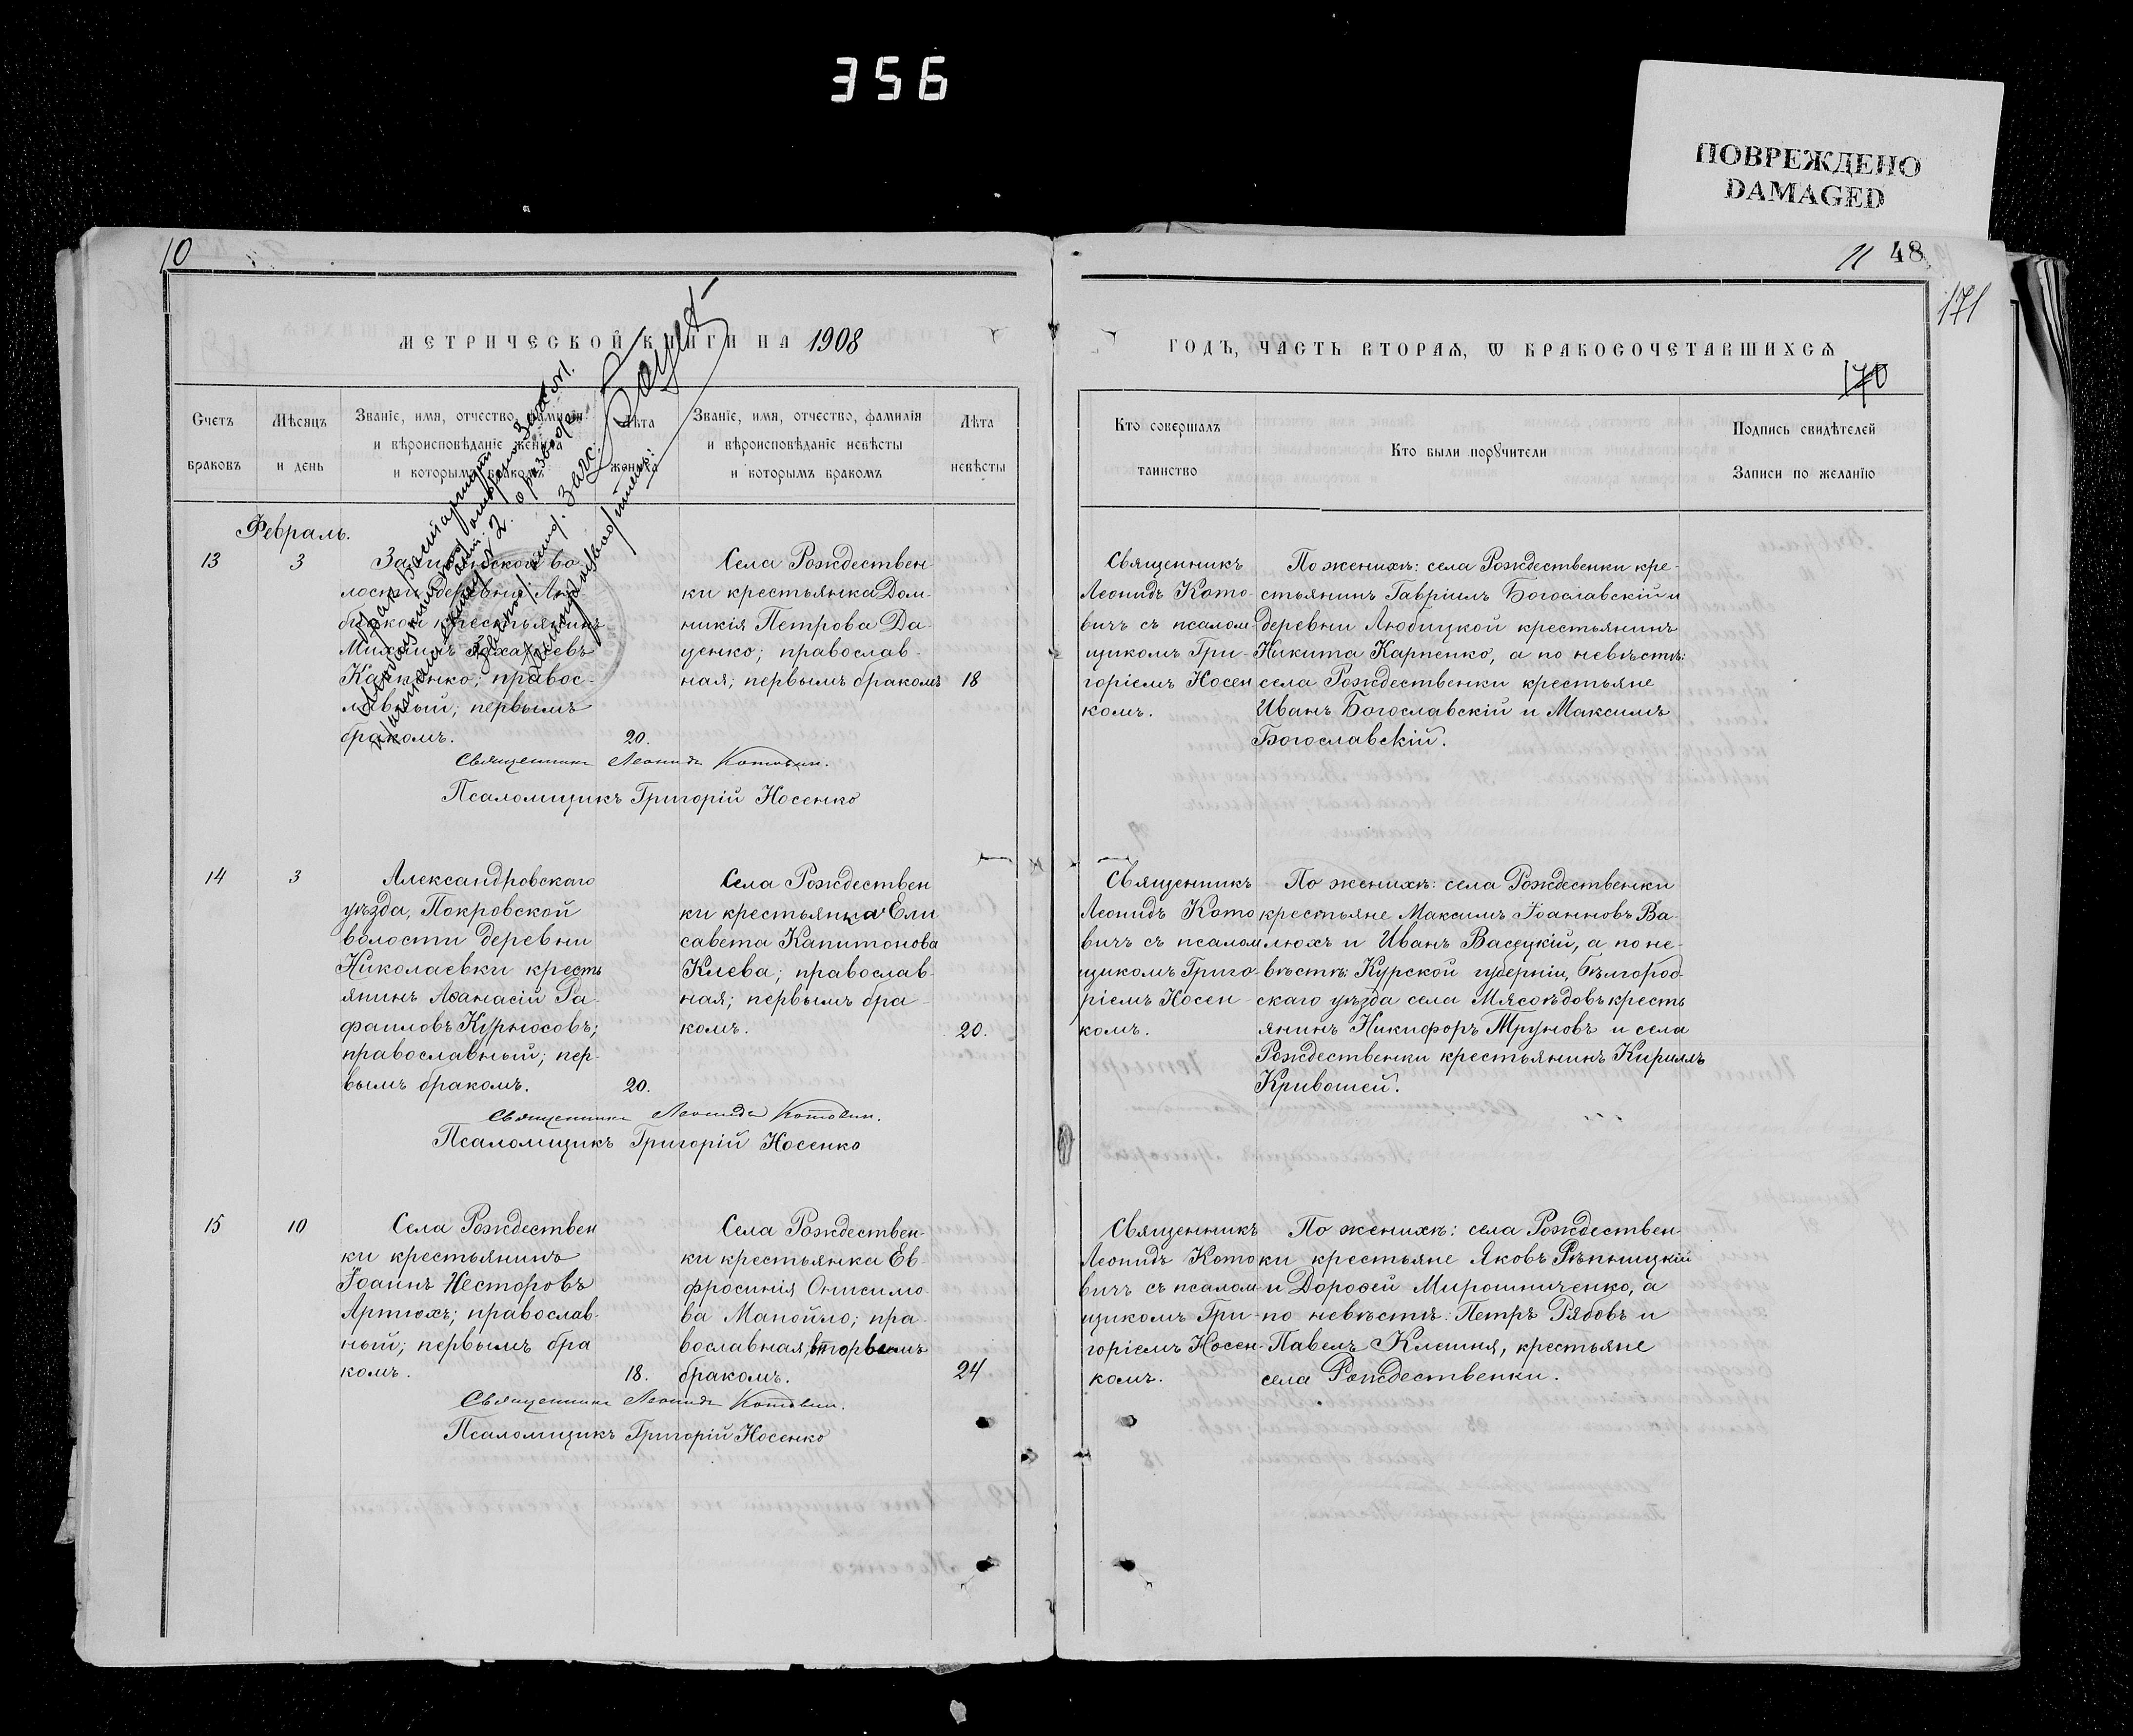 356
ПОВРЕЖДЕНО
DAMAGED
10
МЕТРИЧЕСКОЙ КНИГИ НА 1908
Счетъ
браковъ
Мѣсяцъ
и день
Званіе, имя, отчество, фамилія
и вѣроисповѣданіе жениха
и которымъ бракомъ
Лѣта
жениха
Званіе, имя, отчество, фамилія
и вѣроисповѣданіе невѣсты
и которымъ бракомъ
Лѣта
невѣсты
Февраль.
13
3
во
лости деревни Лю-
бицкой крестьянинъ
Михаилъ
Карпенко; правос-
лавный; первымъ
бракомъ.
20.
Села Рождествен
ки крестьянка Дом-
никія Петрова Да-
ценко; православ-
ная; первымъ бракомъ
18
Священникъ Леонидъ Котович.
Псаломщикъ Григорій Носенко
14
3
Александровскаго
уѣзда, Покровской
волости деревни
Николаевки кресть
янинъ Аѳанасій Ра-
фаиловъ Курносовъ;
православный; пер-
вымъ бракомъ.
20.
Села Рождествен
ки крестьянка Ели
савета Капитонова
Клева; православ-
ная; первымъ бра-
комъ.
20.
Священникъ Леонидъ Котович.
Псаломщикъ Григорій Носенко
15
10
Села Рождествен
ки крестьянинъ
Іоаннъ Несторовъ
Артюхъ; православ-
ный; первымъ бра
комъ.
18.
Села Рождествен-
ки крестьянка Ев-
фросинія Онисимо
ва Манойло; пра-
вославная, вторымъ
бракомъ.
24
Священникъ Леонидъ Котович.
Псаломщикъ Григорій Носенко
11
48
171
ГОДЪ, ЧАСТЬ ВТОРАЯ, Ѡ БРАКОСОЧЕТАВШИХСЯ
170
Кто совершалъ
таинство
Кто были порꙋчители
Подпись свидѣтелей
Записи по желанію
Священникъ
Леонидъ Кото-
вичъ съ псалом-
щикомъ Гри-
горіемъ Носен
комъ.
По женихѣ: села Рождественки кре-
стьянинъ Гавріилъ Богославскій и
деревни Любицкой крестьянинъ
Никита Карпенко, а по невѣстѣ:
села Рождественки крестьяне
Иванъ Богославскій и Максимъ
Богославскій.
Священникъ
Леонидъ Кото
вичъ съ псалом
щикомъ Григо-
ріемъ Носен-
комъ.
По женихѣ: села Рождественки
крестьяне Максимъ Іоанновъ Ва-
люхъ и Иванъ Васецкій, а по не-
вѣстѣ: Курской губерніи, Бѣлгород-
скаго уѣзда села Мясоѣдовъ кресть
янинъ Никифоръ Труновъ и села
Рождественки крестьянинъ Кириллъ
Кривошей.
Священникъ
Леонидъ Кото
вичъ съ псалом
щикомъ Гри-
горіемъ Носен-
комъ.
По женихѣ: села Рождествен
ки крестьяне Яковъ Рѣпницкій
и Дороѳей Мирошниченко, а
по невѣстѣ: Петръ Рябовъ и
Павелъ Клешня, крестьяне
села Рождественки.